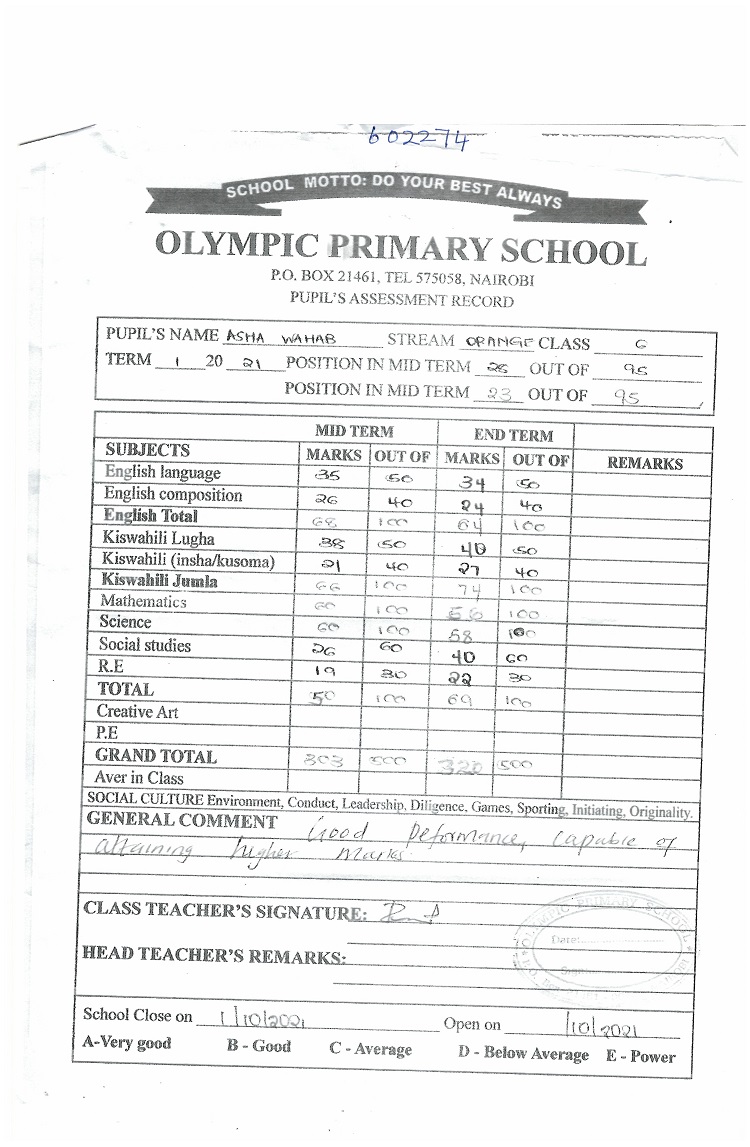 602274
SCHOOL MOTTO: DO YOUR BEST ALWAYS
OLYMPIC PRIMARY SCHOOL
P.O. BOX 21461, TEL 575058, NAIROBI
PUPIL'S ASSESSMENT RECORD
PUPIL'S NAME ASHA WAHAB STREAM ORANGE CLASS 6
TERM 1 20 21 POSITION IN MID TERM 26 OUT OF 95
POSITION IN MID TERM 23 OUT OF 95
MID TERM END TERM
SUBJECTS MARKS OUT OF MARKS OUT OF REMARKS
English language 35 50 34 50
English composition 26 40 24 40
English Total 68 100 64 100
Kiswahili Lugha 38 50 40 50
Kiswahili (insha/kusoma) 21 40 27 40
Kiswahili Jumla 66 100 74 100
Mathematics 60 100 56 100
Science 60 100 58 100
Social studies 26 60 40 60
R.E 19 30 22 30
TOTAL 50 100 69 100
Creative Art
P.E
GRAND TOTAL 303 500 320 500
Aver in Class
SOCIAL CULTURE Environment, Conduct, Leadership, Diligence, Games, Sporting, Initiating, Originality.
GENERAL COMMENT Good Peformance, capable of
attaining higher Marks.
CLASS TEACHER'S SIGNATURE:
OLYMPIC PRIMARY SCHOOL
Date:
HEAD TEACHER'S REMARKS:
School Close on 1/10/2021 Open on /10/2021
A-Very good B - Good C - Average D - Below Average E - Power